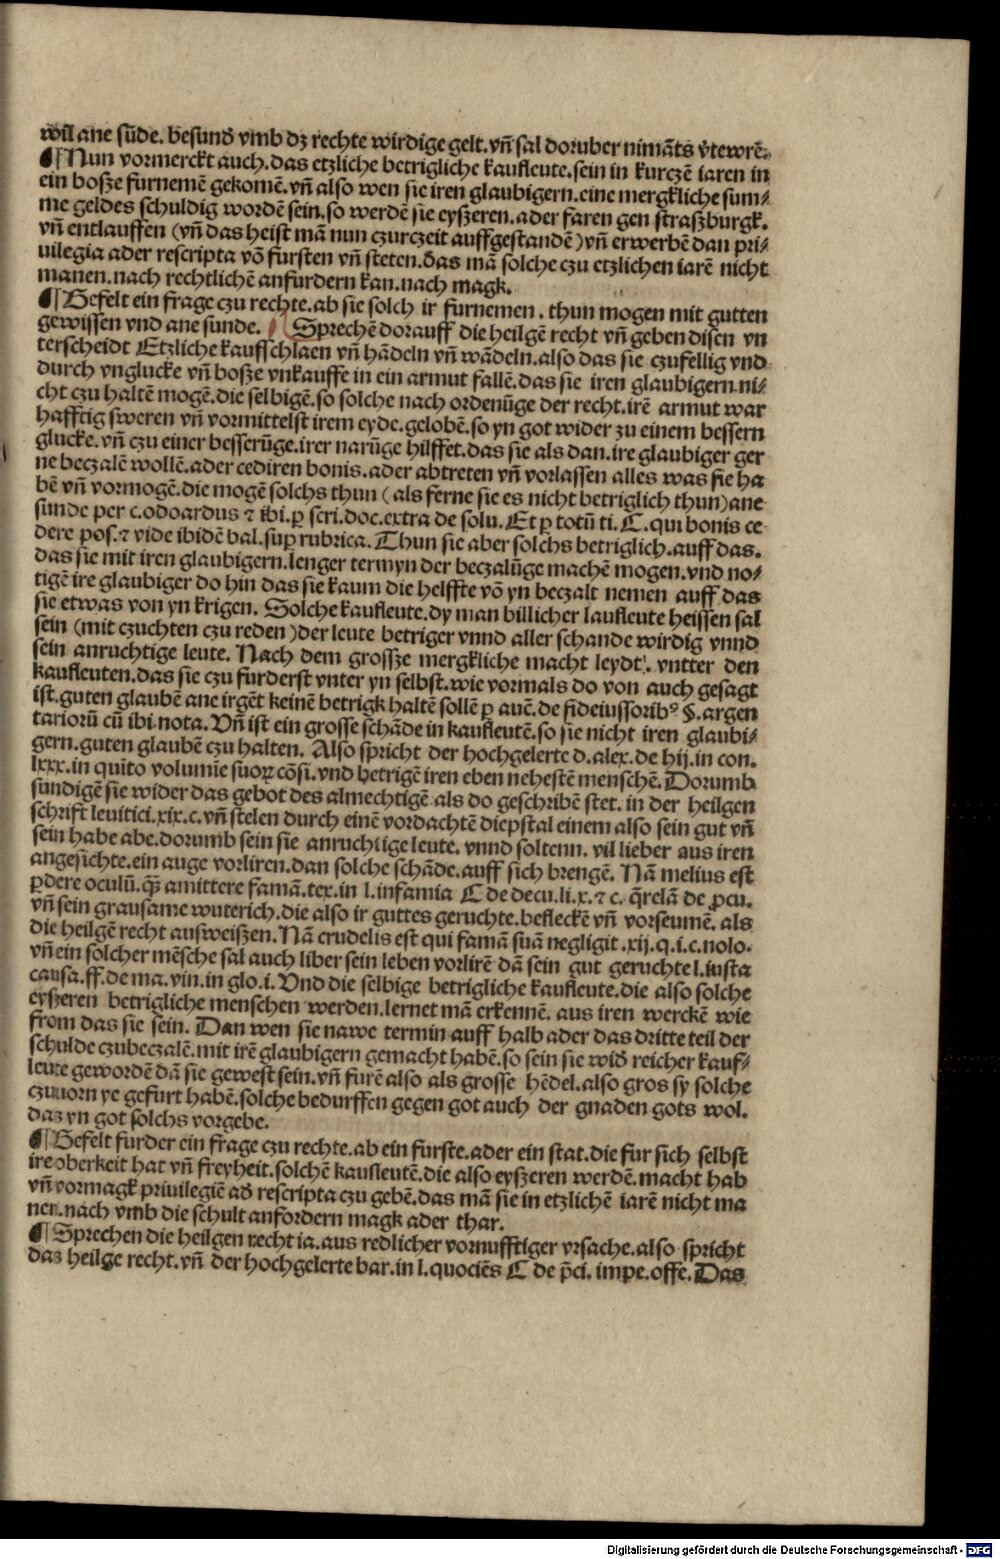 wil ane sũde. besund̕ vmb dz rechte wirdige gelt. vñ sal doruber nimãts v̕tewrẽ.
¶ Nun vormerckt auch. das etzliche betrigliche kaufleute. sein in kurczẽ iaren in
ein bosze furnemẽ gekomẽ. vñ also wen sie iren glaubigern. eine mergkliche sum⸗
me geldes schuldig wordẽ sein. so werdẽ sie eyszeren. ader faren gen straszburgk.
vñ entlauffen (vñ das heist mã nun czurczeit auffgestandẽ) vñ erwerbẽ dan pri⸗
uilegia ader rescripta võ fursten vñ steten. das mã solche czu etzlichen iarẽ nicht
manen. nach rechtlichẽ anfurdern kan. nach magk.
¶ Gefelt ein frage czu rechte. ab sie solch ir furnemen. thun mogen mit gutten
gewissen vnd ane sunde. ¶ Sprechẽ dorauff die heilgẽ recht vñ geben disen vn
terscheidt Etzliche kauffschlaen vñ hãdeln vñ wãdeln. also das sie czufellig vnd
durch vnglucke vñ bosze vnkauffe in ein armut fallẽ. das sie iren glaubigern. ni⸗
cht czu haltẽ mogẽ. die selbigẽ. so solche nach ordenũge der recht. irẽ armut war
hafftig sweren vñ vormittelst irem eyde. gelobẽ. so yn got wider zu einem bessern
glucke. vñ czu einer besserũge. irer narũge hilffet. das sie als dan. ire glaubiger ger
ne beczalẽ wollẽ. ader cediren bonis. ader abtreten vñ vorlassen alles was sie ha
bẽ vñ vormogẽ. die mogẽ solchs thun (als ferne sie es nicht betriglich thun) ane
sunde per c. odoardus ⁊ ibi. ꝑ scri. doc. extra de solu. Et ꝑ totũ ti. C. qui bonis ce
dere pos. ⁊ vide ibidẽ bal. suꝑ rubrica. Thun sie aber solchs betriglich. auff das.
das sie mit iren glaubigern. lenger termyn der beczalũge machẽ mogen. vnd no⸗
tigẽ ire glaubiger do hin das sie kaum die helffte võ yn beczalt nemen auff das
sie etwas von yn krigen. Solche kaufleute. dy man billicher laufleute heissen sal
sein (mit czuchten czu reden) der leute betriger vnnd aller schande wirdig vnnd
sein anruchtige leute. Nach dem grossze mergkliche macht leydt. vntter den
kaufleuten. das sie czu furderst vnter yn selbst. wie vormals do von auch gesagt
ist. guten glaubẽ ane irgẽt keinẽ betrigk haltẽ sollẽ ꝑ auẽ. de fideiussoribꝰ §. argen
tariorũ cũ ibi nota. Vñ ist ein grosse schãde in kaufleutẽ. so sie nicht iren glaubi⸗
gern. guten glaubẽ czu halten. Also spricht der hochgelerte d. alex. de hij. in con.
lxxx. in quĩto volumĩe suoꝝ cõsi. vnd betrigẽ iren eben nehestẽ menschẽ. Dorumb
sundigẽ sie wider das gebot des almechtigẽ als do geschribẽ stet. in der heilgen
schrift leuitici. xix. c. vñ stelen durch einẽ vordachtẽ diepstal einem also sein gut vñ
sein habe abe. dorumb sein sie anruchtige leute. vnnd soltenn. vil lieber aus iren
angesichte. ein auge vorliren. dan solche schãde. auff sich brengẽ. Nã melius est
ꝑdere oculũ. qꝫ̃ amittere famã. tex. in l. infamia C de decu. li. x. ⁊ c. q̃relã de ꝓcu.
vñ sein grausame wuterich. die also ir guttes geruchte. befleckẽ vñ vorseumẽ. als
die heilgẽ recht ausweiszen. Nã crudelis est qui famã suã negligit. xij. q. i. c. nolo.
vñ ein solcher mẽsche sal auch liber sein leben vorlirẽ dã sein gut geruchte l. iusta
causa. ff. de ma. vin. in glo. i. Vnd die selbige betrigliche kaufleute. die also solche
eyszeren betrigliche menschen werden. lernet mã erkennẽ. aus iren werckẽ wie
from das sie sein. Dan wen sie nawe termin auff halb ader das dritte teil der
schulde czubeczalẽ. mit irẽ glaubigern gemacht habẽ. so sein sie wid̕ reicher kauf⸗
leute gewordẽ dã sie gewest sein. vñ furẽ also als grosse hẽdel. also gros sy solche
czuuorn ye gefurt habẽ. solche bedurffen gegen got auch der gnaden gots wol.
daz yn got solchs vorgebe.
¶ Gefelt furder ein frage czu rechte. ab ein furste. ader ein stat. die fur sich selbst
ire oberkeit hat vñ freyheit. solchẽ kaufleutẽ. die also eyszeren werdẽ. macht hab
vñ vormagk priuilegiẽ ad̕ rescripta czu gebẽ. das mã sie in etzlichẽ iarẽ nicht ma
nen. nach vmb die schult anfordern magk ader thar.
¶ Sprechen die heilgen recht ia. aus redlicher vornufftiger vrsache. also spricht
daz heilge recht. vñ der hochgelerte bar. in l. quociẽs C de p̃ci. impe. offe. Das
Digitalisierung gefördert durch die Deutsche Forschungsgemeinschaft - DFG